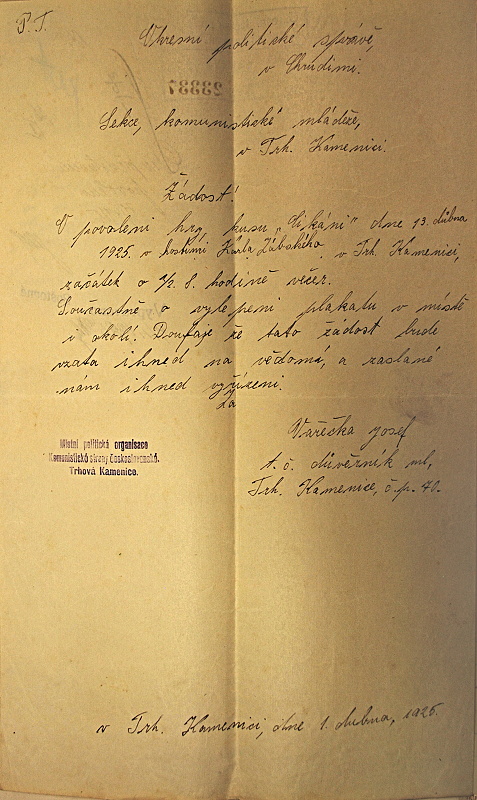 P. T.
Okresní politické správě,
v Chrudimi.
23337
Sekce, komunistické mládeže,
v Trh. Kamenici.
Žádost!
O povolení hry, kusu „Cikáni" dne 13. dubna
1925. v hostinci Karla Zábského, v Trh. Kamenici,
začátek o 1/2 8. hodině večer.
Součastně o vylepení plakatu v místě
v okolí. Doufaje že tato žádost bude
vzata ihned na vědomá, a zaslané
nám ihned vyřízení.
Za
Vařečka Josef
t. č. důvěrník ml,
Trh. Kamenice, č.p. 40.
Místní politická organisace
Komunistické strany Československé.
Trhová Kamenice.
v Trh. Kamenici, dne 1. dubna, 1925.